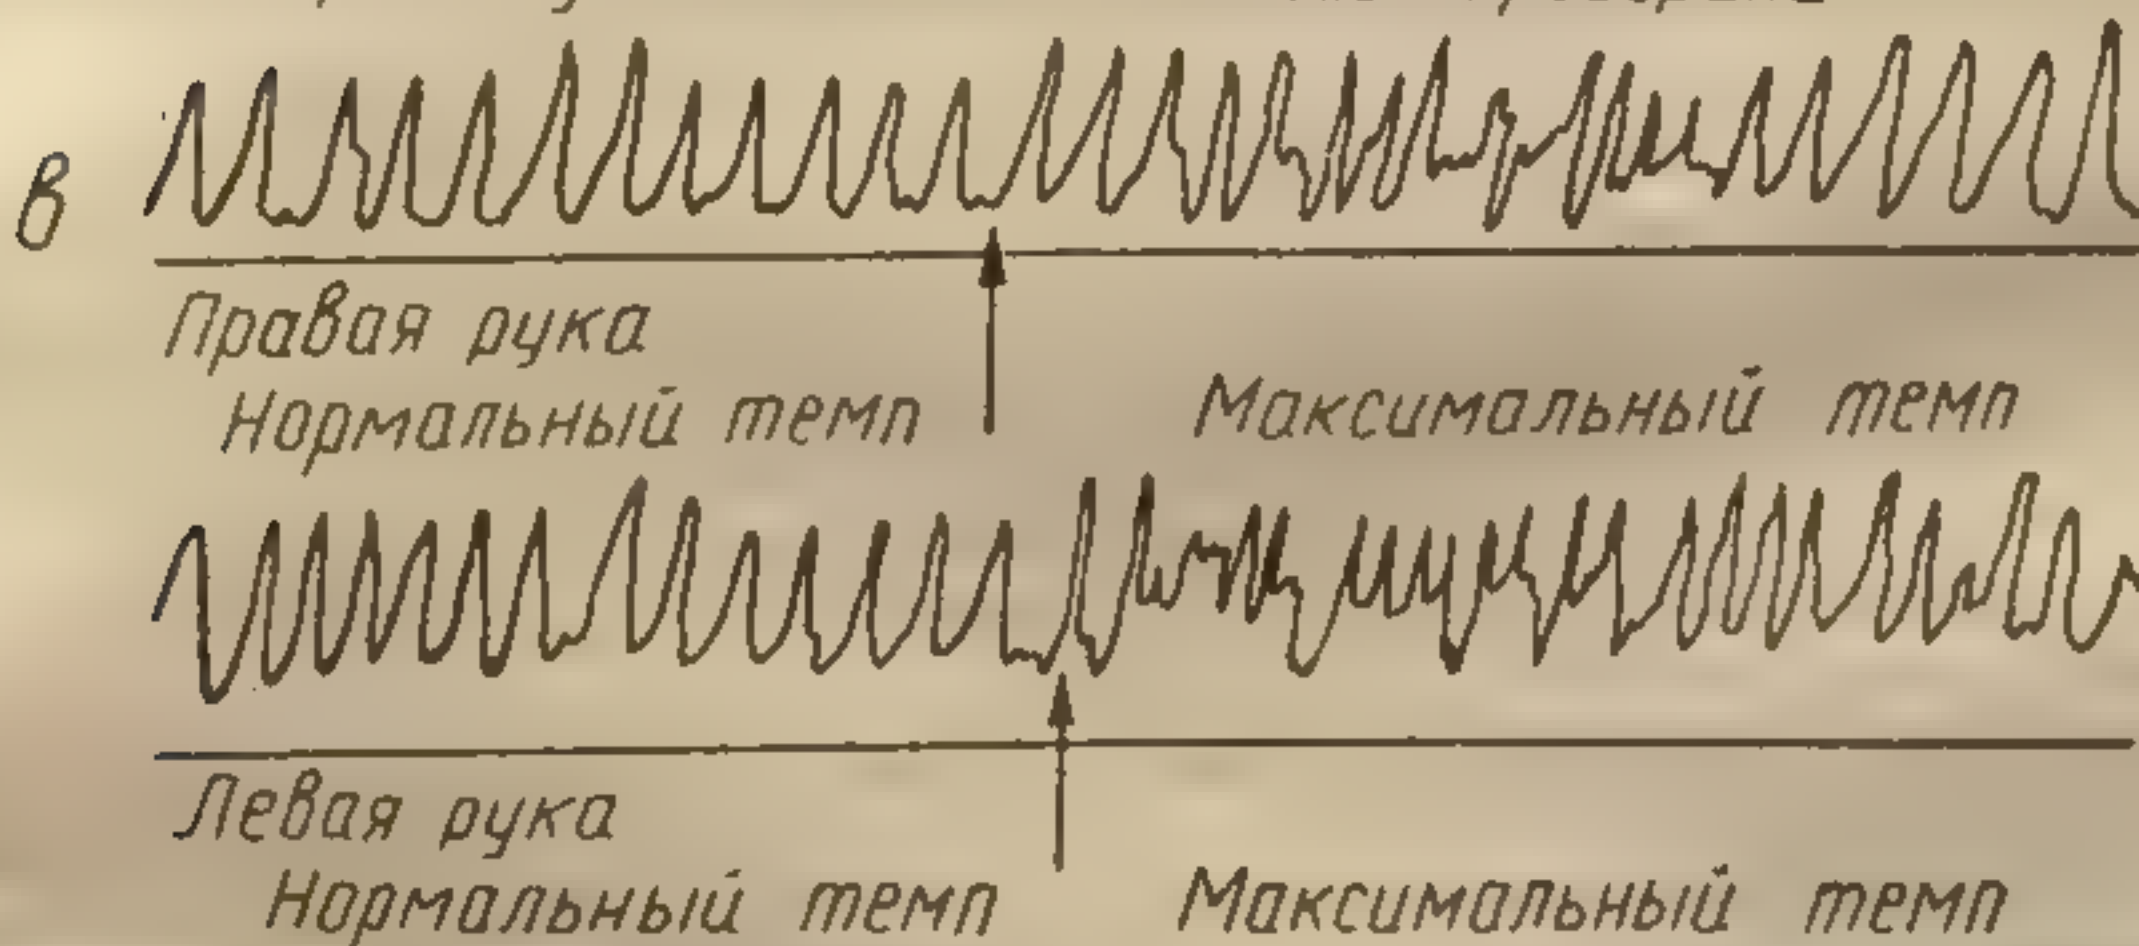 в
Правая рука
Нормальный темп Максимальный темп
Левая рука
Нормальный темп Максимальный темп